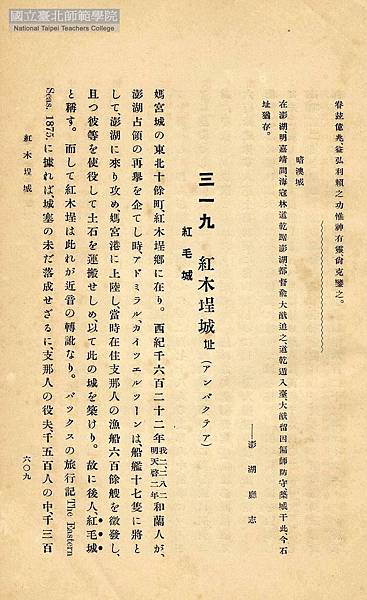 國立臺北師範學院
National Taipei Teachers College
眷茲億兆、益弘利賴之功、惟神有靈、尙克鑒之。
暗澳城
在澎湖明嘉靖間海寇林道乾踞澎湖都督兪大猷追之、道乾遁入臺大猷留因偏師防守築城于此、今石
址猶存。
——澎湖廳志
三一九 紅木埕城址(アンバクテア)
紅毛城
媽宮城の東北十餘町、紅木埕鄕に在り。西紀千六百二十二年我二、二八二明天啓二年和蘭人が、
澎湖占領の再擧を企てし時、アドミラル、カイツエルツーンは、船艦十七隻に將と
して澎湖に來り攻め媽宮港に上陸し、當時在住支那人の漁船六百餘艘を徵發し、
且つ彼等を使役して土石を運搬せしめ、以て此の城を築けり。故に後人、紅毛城
と稱す。而して紅木埕は此れが近音の轉訛なり。バックスの旅行記The Eastern
Seas. 1875.に據れば城塞の未だ落成せざるに、支那人の役夫千五百人の中、千三百
紅木埕城
六〇九